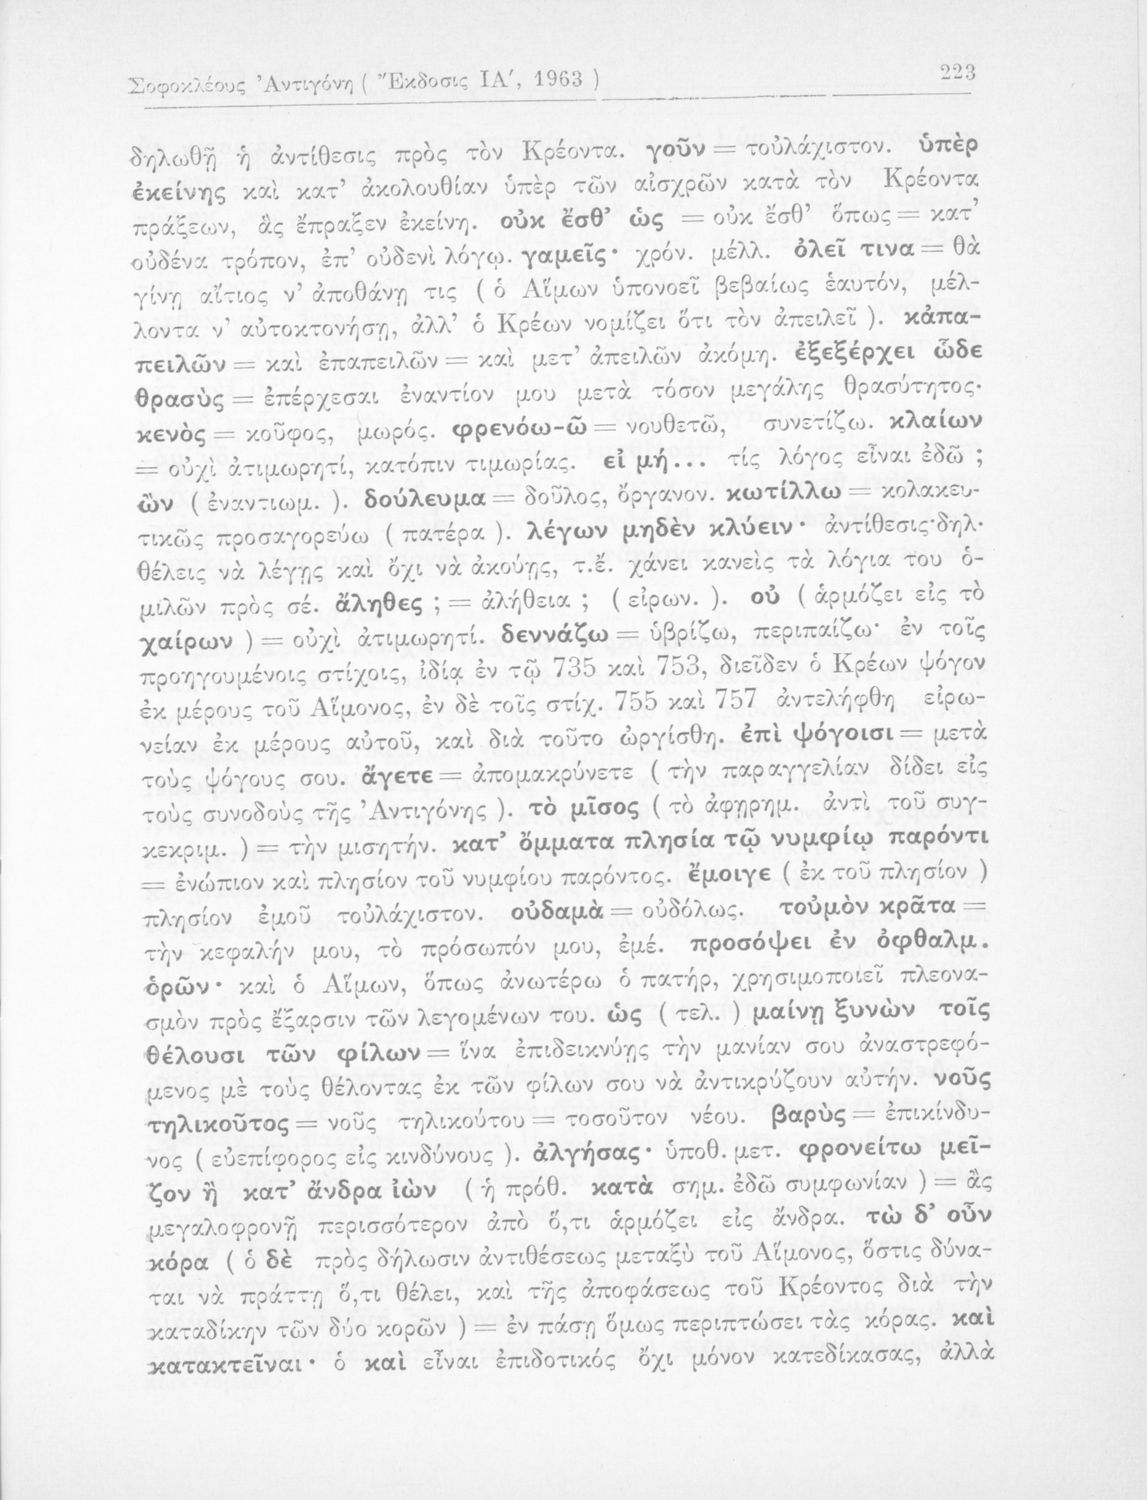 Σοφοκλέους Ἀντιγόνη ( Ἔκδοσις ΙΑ′, 1963 ) 223
δηλωθῇ ἡ ἀντίθεσις πρὸς τὸν Κρέοντα. γοῦν = τοὐλάχιστον. ὑπὲρ
ἐκείνης καὶ κατ’ ἀκολουθίαν ὑπὲρ τῶν αἰσχρῶν κατὰ τὸν Κρέοντα
πράξεων, ἃς ἔπραξεν ἐκείνη. οὐκ ἔσθ’ ὡς = οὐκ ἔσθ’ ὅπως = κατ’
οὐδένα τρόπον, ἐπ’ οὐδενὶ λόγῳ. γαμεῖς· χρόν. μέλλ. ὀλεῖ τινα = θὰ
γίνῃ αἴτιος ν’ ἀποθάνῃ τις ( ὁ Αἵμων ὑπονοεῖ βεβαίως ἑαυτόν, μέλ-
λοντα ν’ αὐτοκτονήσῃ, ἀλλ’ ὁ Κρέων νομίζει ὅτι τὸν ἀπειλεῖ ). κἀπα-
πειλῶν = καὶ ἐπαπειλῶν = καὶ μετ’ ἀπειλῶν ἀκόμη. ἐξεξέρχει ὧδε
θρασὺς = ἐπέρχεσαι ἐναντίον μου μετὰ τόσον μεγάλης θρασύτητος·
κενὸς = κοῦφος, μωρός. φρενόω-ῶ = νουθετῶ, συνετίζω. κλαίων
= οὐχὶ ἀτιμωρητί, κατόπιν τιμωρίας. εἰ μή... τίς λόγος εἶναι ἐδῶ ;
ὢν ( ἐναντιωμ. ). δούλευμα = δοῦλος, ὄργανον. κωτίλλω = κολακευ-
τικῶς προσαγορεύω ( πατέρα ). λέγων μηδὲν κλύειν· ἀντίθεσις·δηλ·
θέλεις νὰ λέγῃς καὶ ὄχι νὰ ἀκούῃς, τ.ἔ. χάνει κανεὶς τὰ λόγια του ὁ-
μιλῶν πρὸς σέ. ἄληθες ; = ἀλήθεια ; ( εἰρων. ). οὐ ( ἁρμόζει εἰς τὸ
χαίρων ) = οὐχὶ ἀτιμωρητί. δεννάζω = ὑβρίζω, περιπαίζω· ἐν τοῖς
προηγουμένοις στίχοις, ἰδίᾳ ἐν τῷ 735 καὶ 753, διεῖδεν ὁ Κρέων ψόγον
ἐκ μέρους τοῦ Αἵμονος, ἐν δὲ τοῖς στίχ. 755 καὶ 757 ἀντελήφθη εἰρω-
νείαν ἐκ μέρους αὐτοῦ, καὶ διὰ τοῦτο ὠργίσθη. ἐπὶ ψόγοισι = μετὰ
τοὺς ψόγους σου. ἄγετε = ἀπομακρύνετε ( τὴν παραγγελίαν δίδει εἰς
τοὺς συνοδοὺς τῆς Ἀντιγόνης ). τὸ μῖσος ( τὸ ἀφῃρημ. ἀντὶ τοῦ συγ-
κεκριμ. ) = τὴν μισητήν. κατ’ ὄμματα πλησία τῷ νυμφίῳ παρόντι
= ἐνώπιον καὶ πλησίον τοῦ νυμφίου παρόντος. ἔμοιγε ( ἐκ τοῦ πλησίον )
πλησίον ἐμοῦ τοὐλάχιστον. οὐδαμὰ = οὐδόλως. τοὐμὸν κρᾶτα =
τὴν κεφαλήν μου, τὸ πρόσωπόν μου, ἐμέ. προσόψει ἐν ὀφθαλμ.
ὁρῶν· καὶ ὁ Αἵμων, ὅπως ἀνωτέρω ὁ πατήρ, χρησιμοποιεῖ πλεονα-
σμὸν πρὸς ἔξαρσιν τῶν λεγομένων του. ὡς ( τελ. ) μαίνῃ ξυνὼν τοῖς
θέλουσι τῶν φίλων = ἵνα ἐπιδεικνύῃς τὴν μανίαν σου ἀναστρεφό-
μενος μὲ τοὺς θέλοντας ἐκ τῶν φίλων σου νὰ ἀντικρύζουν αὐτήν. νοῦς
τηλικοῦτος = νοῦς τηλικούτου = τοσοῦτον νέου. βαρὺς = ἐπικίνδυ-
νος ( εὐεπίφορος εἰς κινδύνους ). ἀλγήσας· ὑποθ. μετ. φρονείτω μεῖ-
ζον ἢ κατ’ ἄνδρα ἰὼν ( ἡ πρόθ. κατὰ σημ. ἐδῶ συμφωνίαν ) = ἂς
μεγαλοφρονῇ περισσότερον ἀπὸ ὅ,τι ἁρμόζει εἰς ἄνδρα. τὼ δ’ οὖν
κόρα ( ὁ δὲ πρὸς δήλωσιν ἀντιθέσεως μεταξὺ τοῦ Αἵμονος, ὅστις δύνα-
ται νὰ πράττῃ ὅ,τι θέλει, καὶ τῆς ἀποφάσεως τοῦ Κρέοντος διὰ τὴν
καταδίκην τῶν δύο κορῶν ) = ἐν πάσῃ ὅμως περιπτώσει τὰς κόρας. καὶ
κατακτεῖναι· ὁ καὶ εἶναι ἐπιδοτικός ὄχι μόνον κατεδίκασας, ἀλλὰ